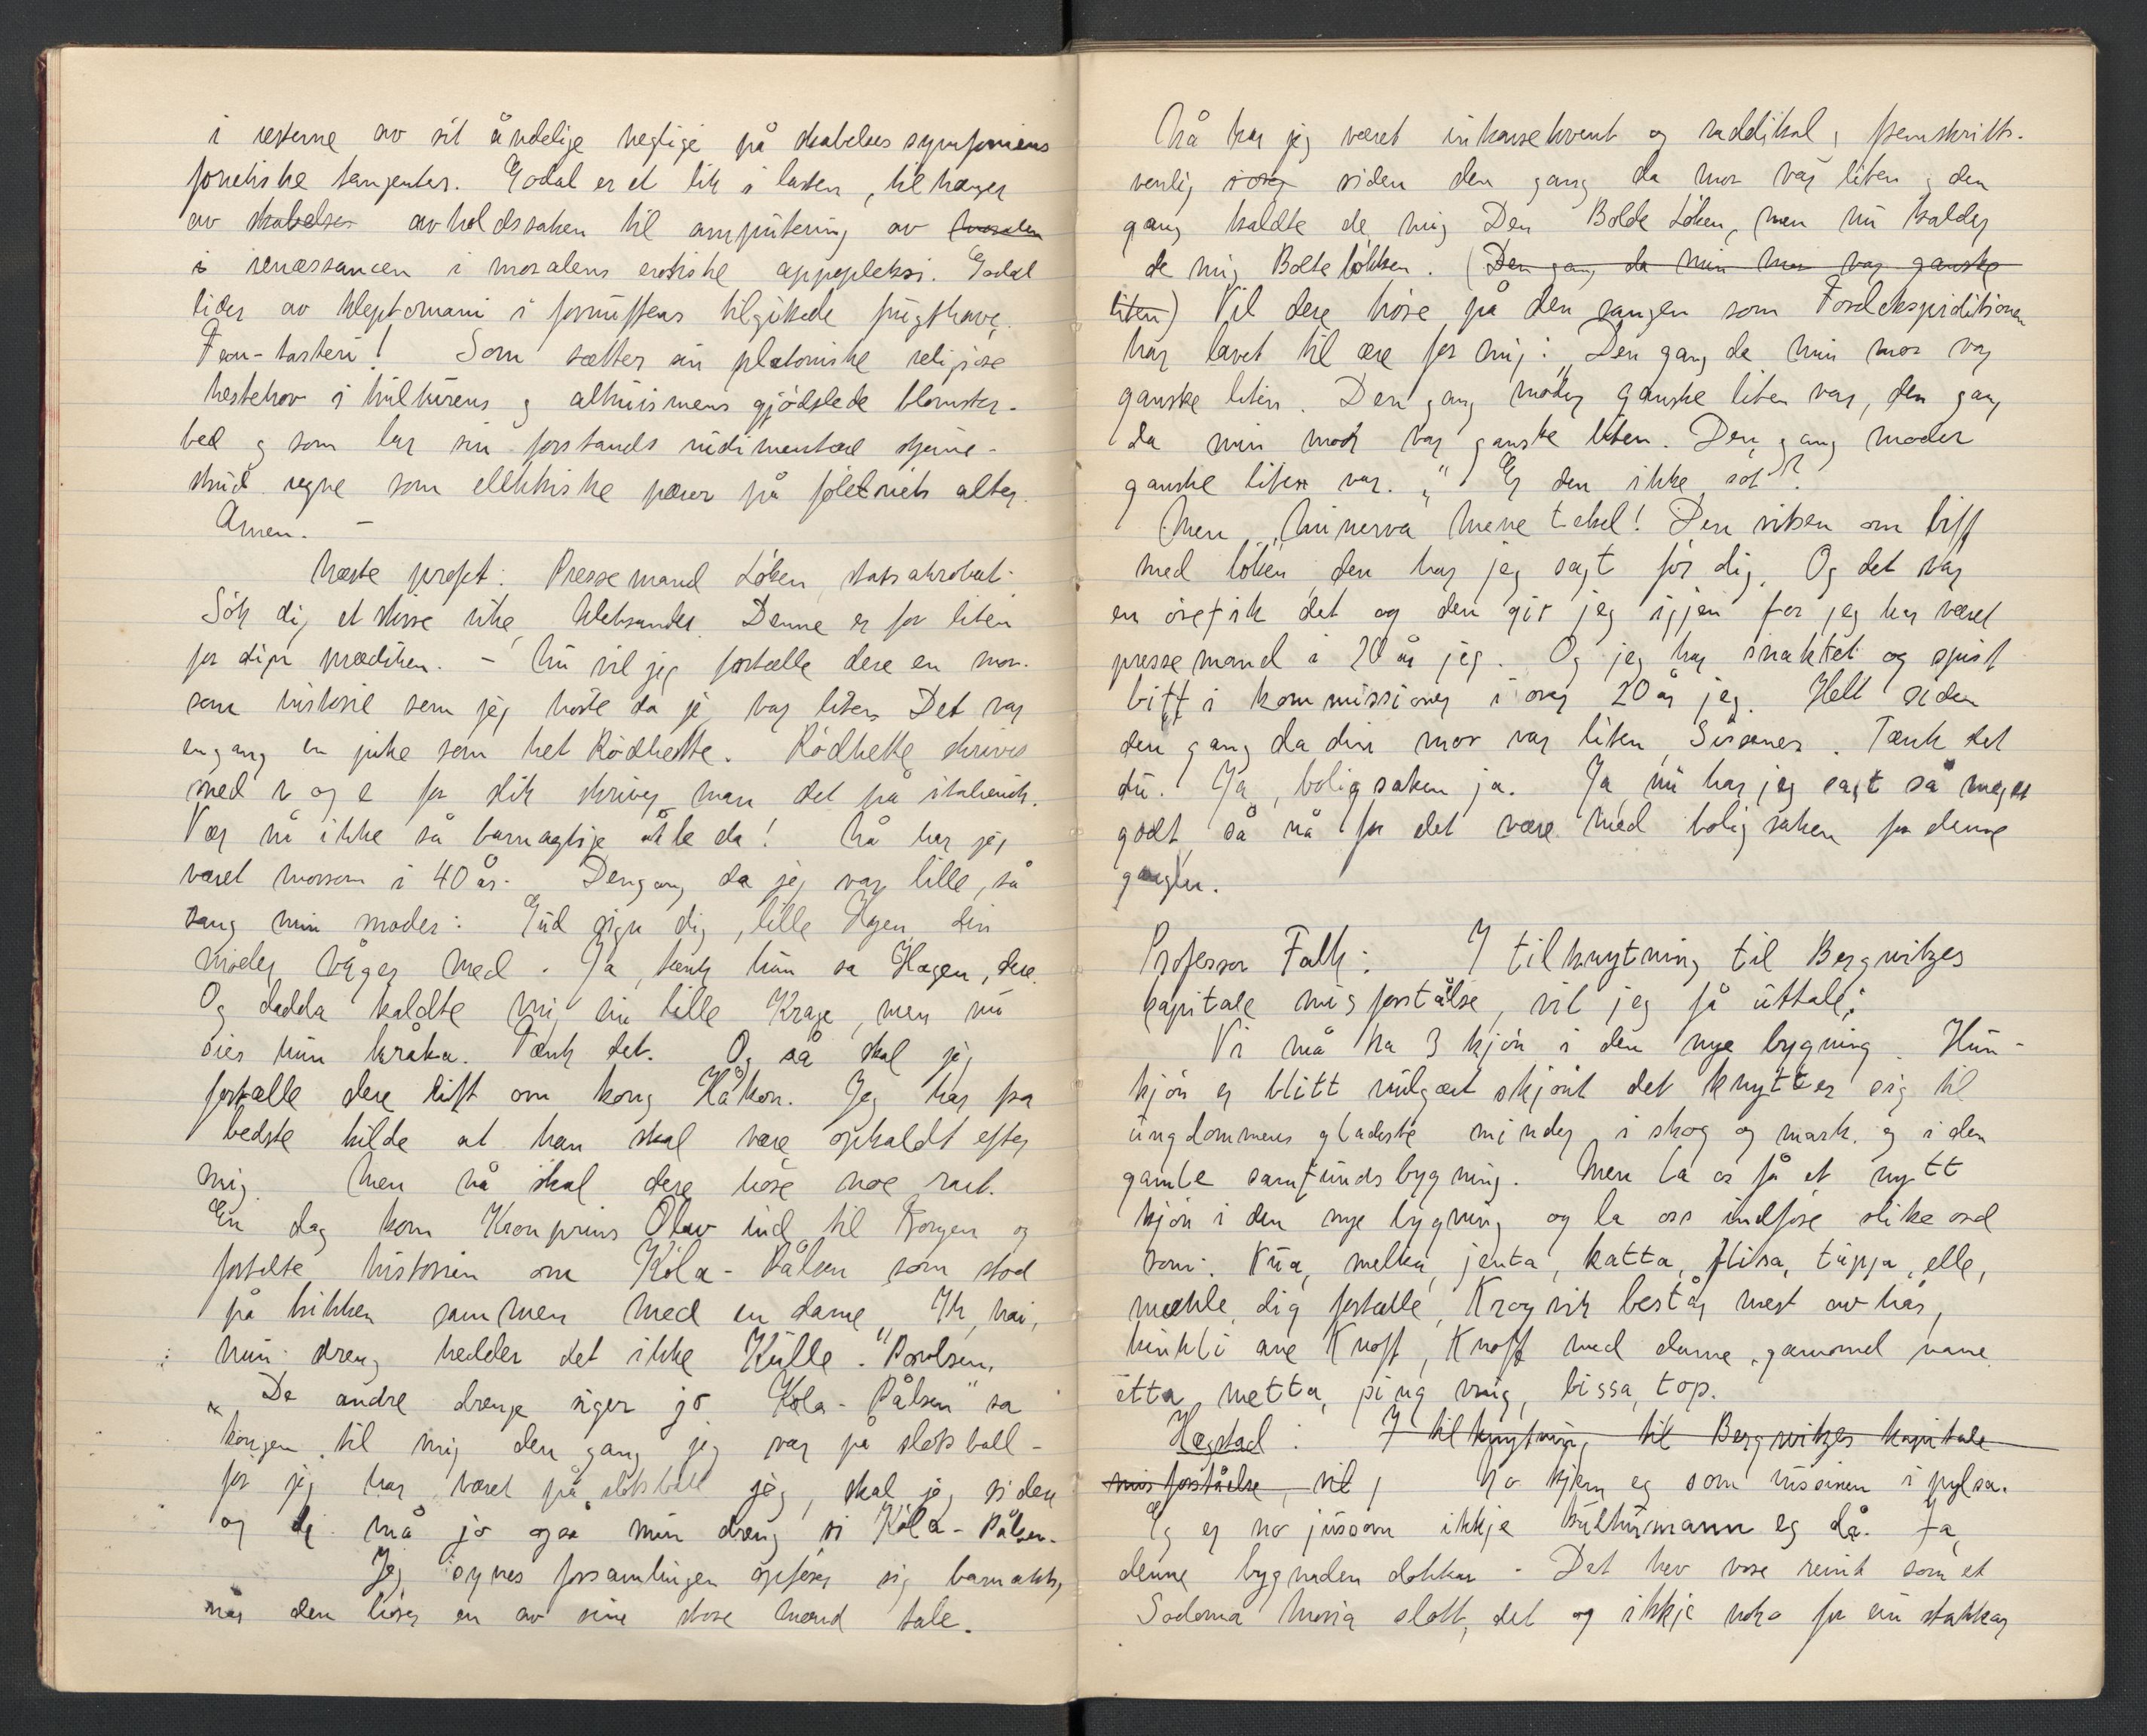 i resterne av sit åndelige negligé på skabelsessymfoniens
fonetiske tangenter. Godal er et lik i lasten, tilhænger
av skabelses avholdssaken til amputering av moralen
i renæssancen i moralens erotiske appopleksi. Godal
lider av kleptomani i fornuftens tilgikede frugthave.
Frou-tasteri! Som sætter sin platoniske religiøse
hestehov i kulturens og altruismens gjødslede blomster-
bed og som lar sin forstands rudimentære stjerne-
skud regne som elektriske pærer på föleriets alter.
Amen. –
Næste profet: Pressemand Löken, statsakrobat.
Sök dig et större rike, Aleksander. Denne er for liten
for din prædiken. – Nu vil jeg fortælle dere en mor-
som historie som jeg hörte da je var liten. Det var
engang en pike som het Rödhette. Rödhette skrives
med r og e for slik skriver man det på italiensk.
Vær nå ikke så barnaglige alle da! Nå har jeg
været morsom i 40 år. Dengang da jeg var lille, så
sang min moder: Gud sign dig, lille Hgen, din
moder våger med. Ja, tænk hun sa Hagen, dere.
Og dadda kaldte mig sin lille Krage, men nu
sier hun kråka. Tænk det. Og så skal jeg
fortælle dere litt om kong Håkon. Jeg har fra
bedste kilde at han skal være opkaldt efter
mig. Men nå skal dere höre noe rart.
En dag kom Kronprins Olav ind til Kongen og
fortelte historien om Kola-Pålsen som stod
på kikken sammen med en dame „Nei, nai,
min dreng hedder det ikke Kulle-Poulsen.
„De andre drenge siger jo Kola-Pålsen" sa
kongen til mig den gang jeg var på slotsball –
for jeg har været på slotsball jeg, skal jeg si dere
og dé må jo også min dreng si Kola-Pålsen.
Jeg synes forsamlingen opförer sig barnakti,
når den hörer en av sine store mænd tale.
Nå har jeg været inkonsekvent og raddikal, fremskritts-
venlig i og siden den gang da mor var liten, den
gang kaldte de mig Den Bolde Löken, men nu kalder
de mig Bolte lökken. (Den gang da min mor var ganske
liten) Vil dere höre på den sangen som Fordekspiditionen
har lavet til ære for mig: „Den gang da min mor var
ganske liten. Den gang moder ganske liten var, den gang
da min mor var ganske liten. Den gang moder
ganske liten var." Er den ikke söt?
Men, Minerva mene tekel! Den vitsen om biff
med löken, den har jeg sagt för dig. Og det var
en örefik det og den gir jeg igjen for jeg har været
pressemand i 20 år jeg. Og jeg har snakket og spist
biff i kommissioner i over 20 år jeg. Helt siden
den gang da din mor var liten, Sissener. Tænk det
du. Ja, boligsaken ja. Ja nu har jeg sagt så meget
godt så nå får det være med boligsaken for denne
gangen.
Professor Falk: I tilknytning til Bergwitzes
kapitale misforståelse, vil jeg få uttale:
Vi må ha 3 kjön i den nye bygning. Hun-
kjön er blitt vulgært skjönt det knytter sig til
ungdommens gladeste minder i skog og mark og i den
gamle samfundsbygning. Men la os få et nytt
kjön i den nye bygning og la oss indföre slike ord
som: Kua, melka, jenta, katta, flisa, tuppa, elle,
mækle, dig fortælle, Krogvik består mest av hår,
kinkli ane Knoff, Knoff med denne gammel mane
etta, metta, ping ving, bissa, top.
Hægstad: I tilknytning til Bergwitzes kapitale
misforståelse, vil j No kjem eg som rusinen i pylsa.
Eg er no jusom ikkje kulturmann eg då. Ja,
denne bygnaden dokkar. Det hev vore reint som et
Sodoma Moria slott, det og ikkje noko for ein stakkar